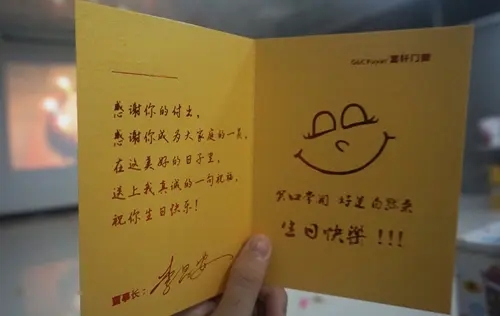 感谢你的付出，
感谢你成为大家庭的一员，
在这美好的日子里，
送上我真诚的一句祝福，
祝你生日快乐！
董事长：
笑口常开 好运自然来
生日快樂 !!!